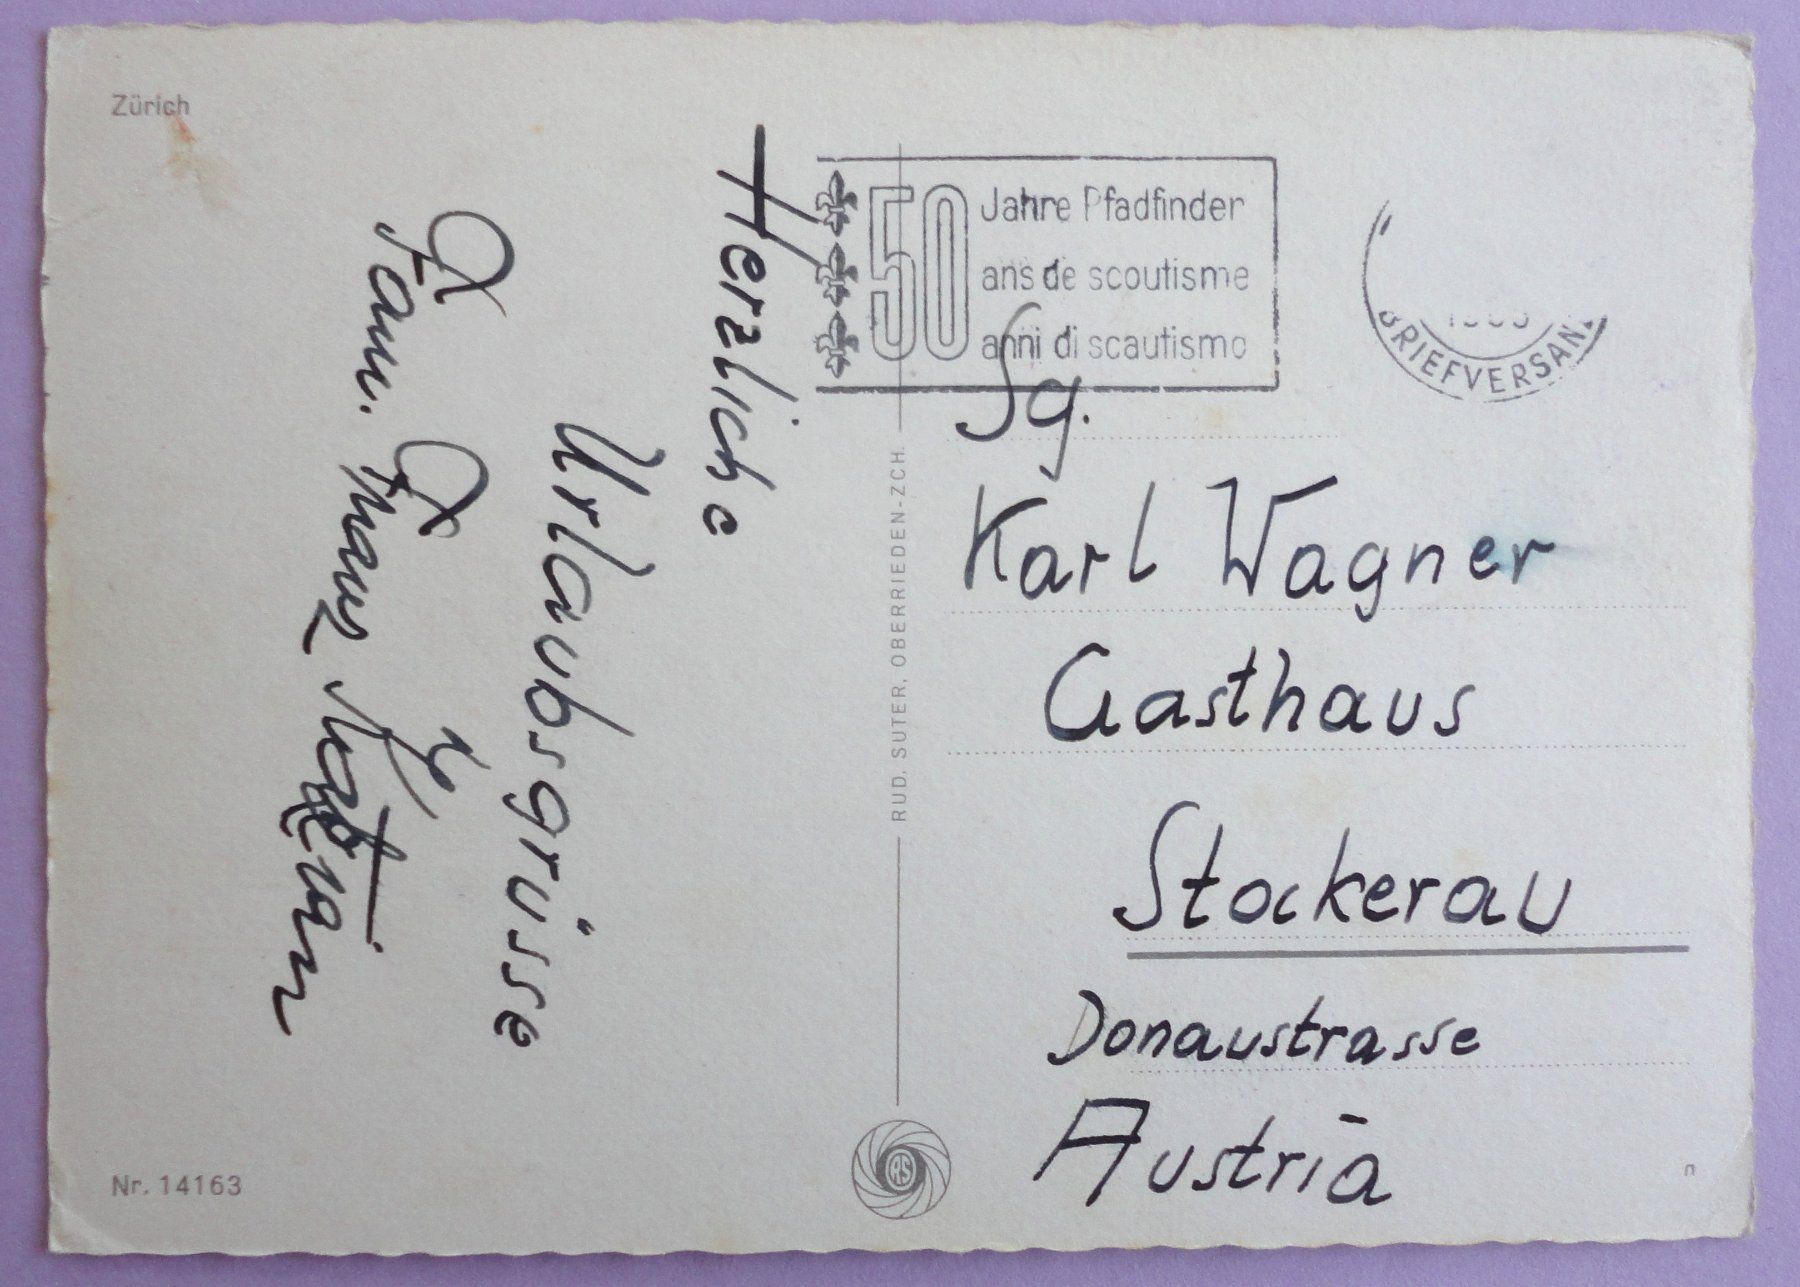 Zürich
Herzliche
Urlaubsgrüsse
Fam. Franz
50
Jahre Pfadfinder
ans de scoutisme
anni di scautismo
BRIEFVERSAND
Sg.
Karl Wagner
Gasthaus
Stockerau
Donaustrasse
Austria
RUD. SUTER, OBERRIEDEN-ZCH.
RS
Nr. 14163
n